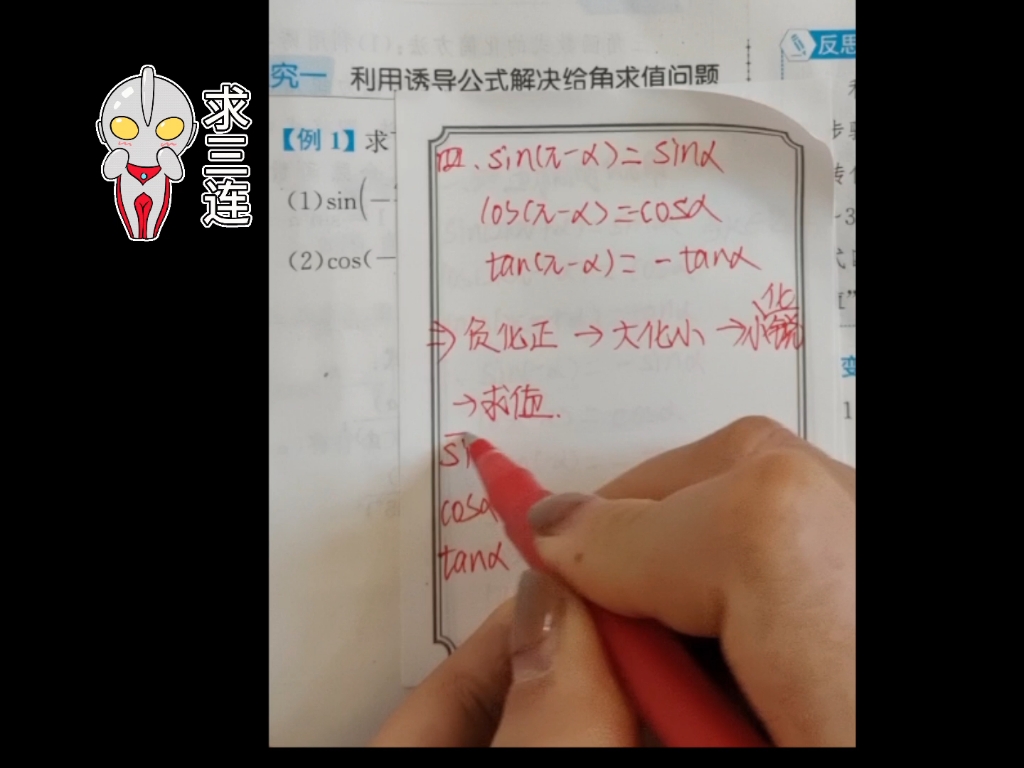 求三连
反思
究一 利用诱导公式解决给角求值问题
【例1】求
(1)sin(-
(2)cos(-
四.sin(π-α)=sinα
cos(π-α)=cosα
tan(π-α)=-tanα
⇒负化正→大化小→小化锐
→求值.
sin
cosα
tanα
变
1